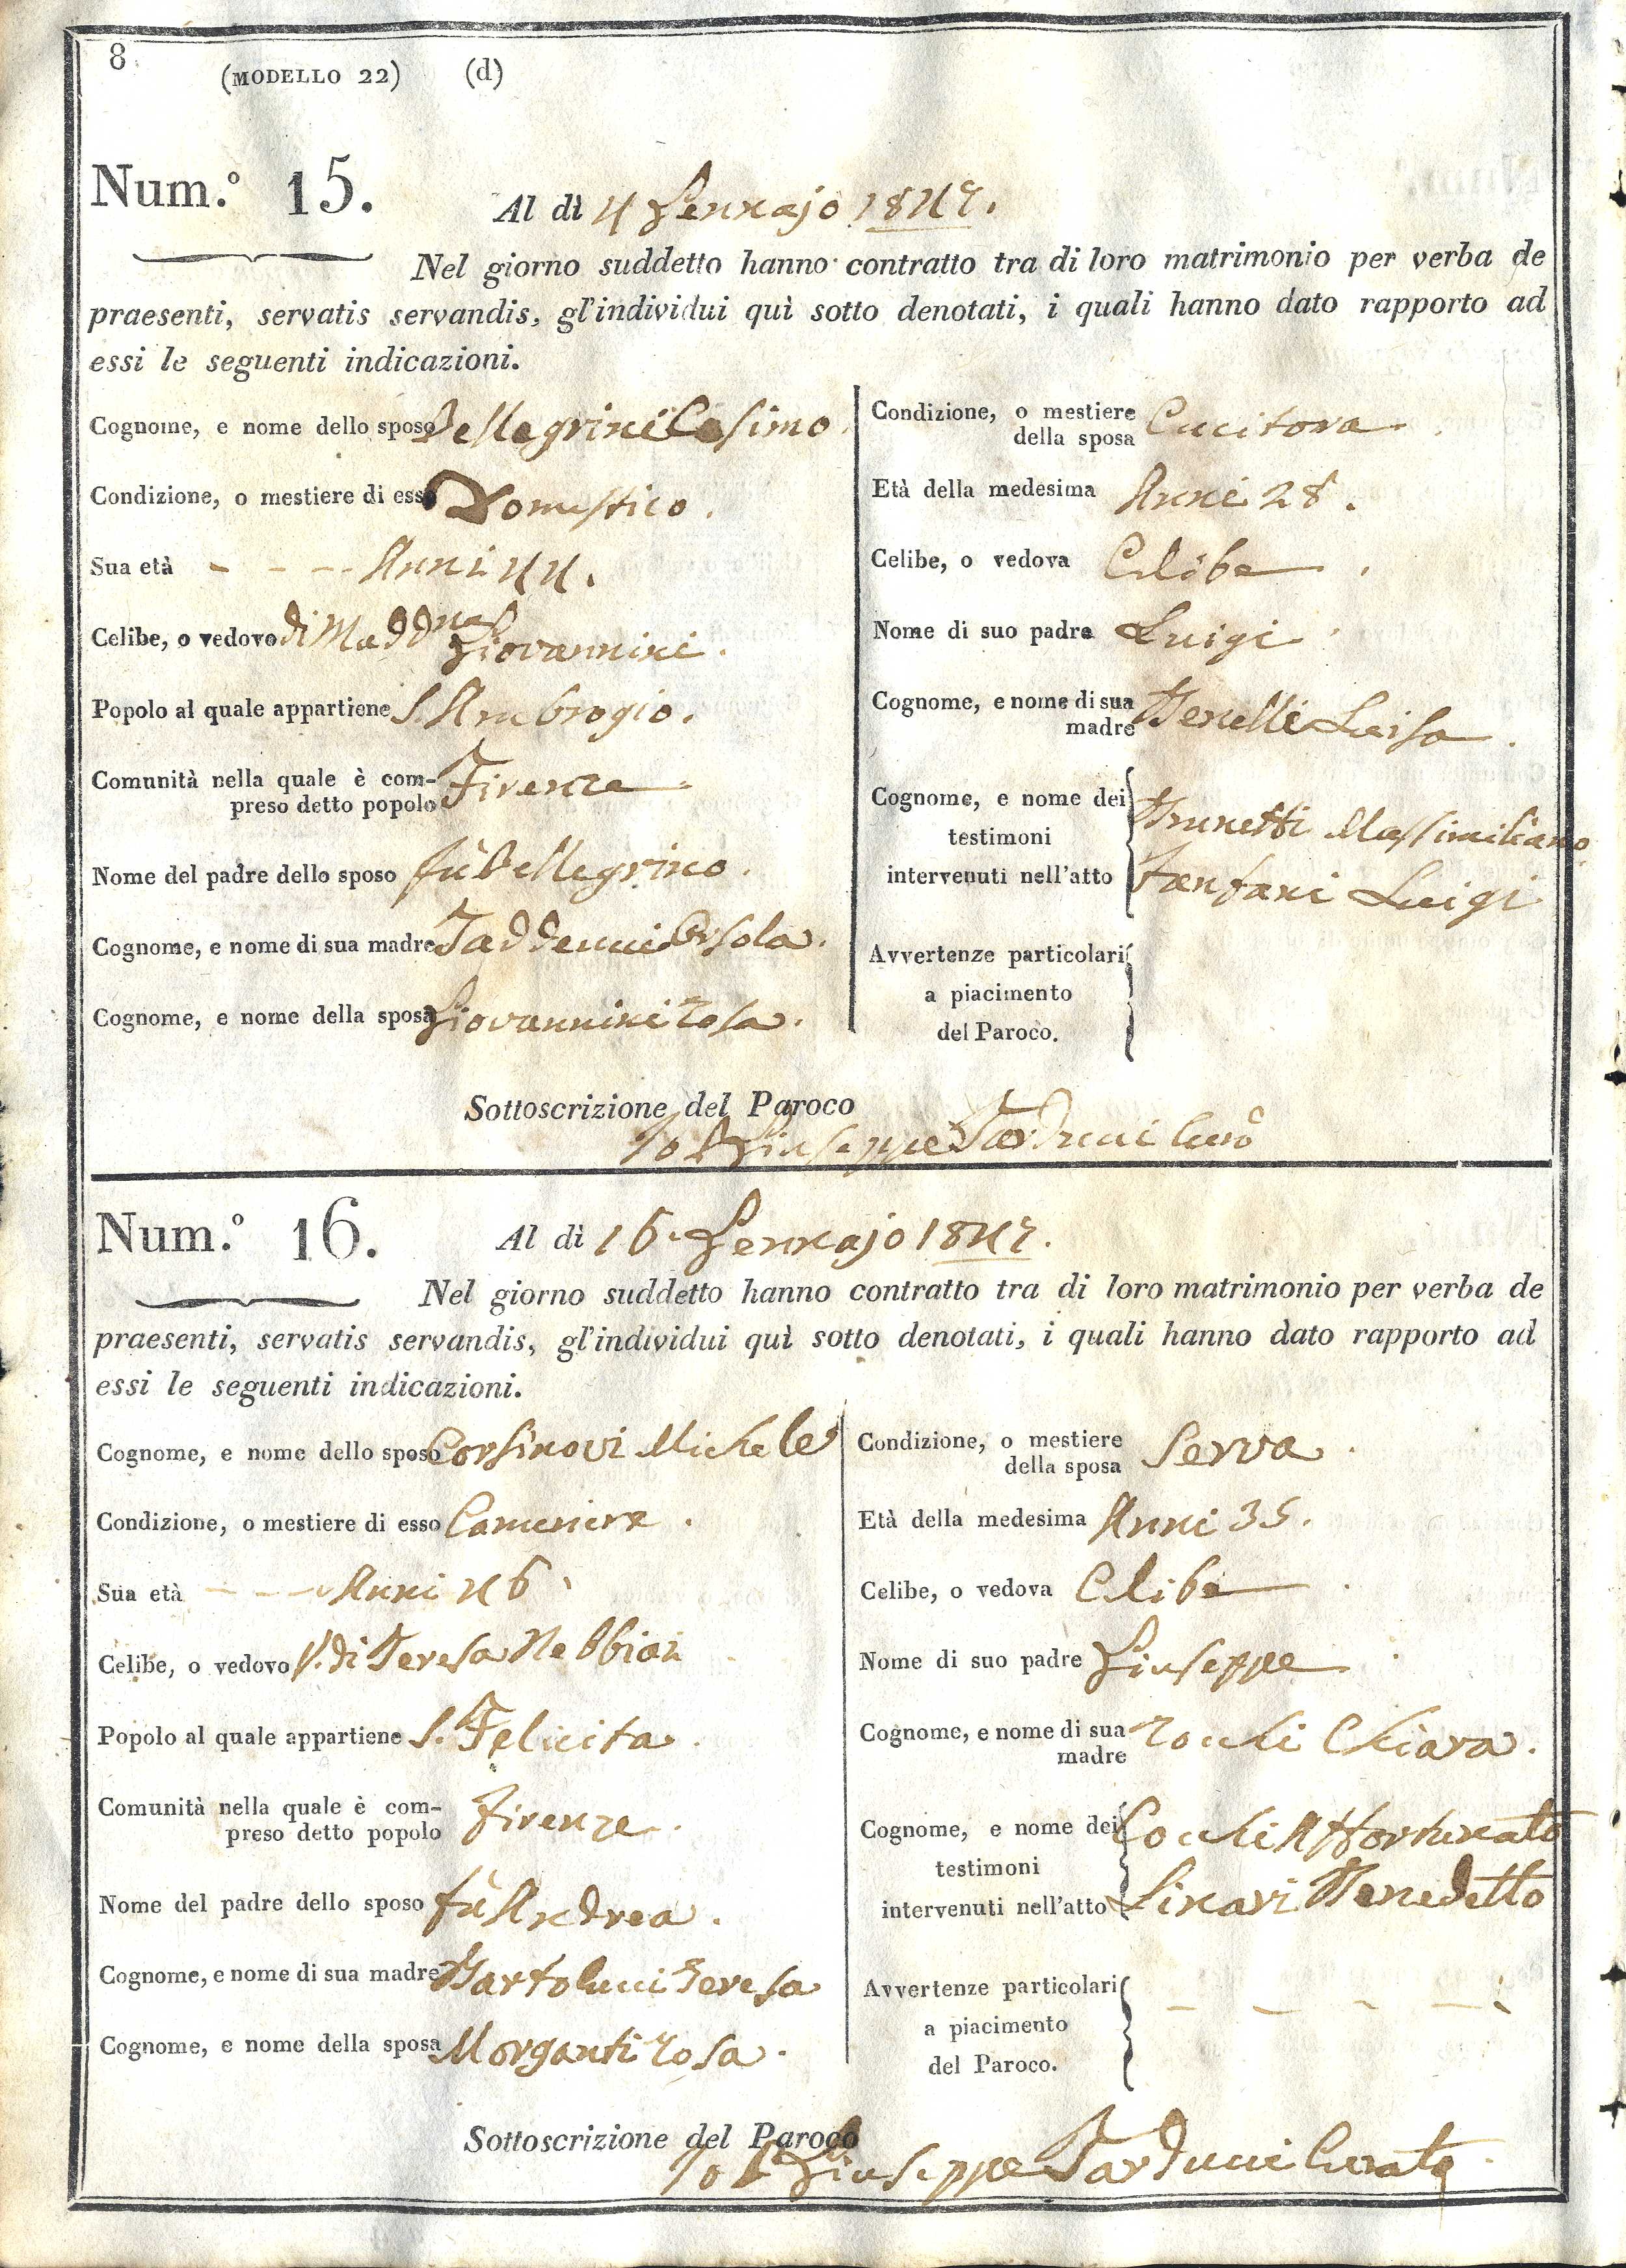 8
(MODELLO 22) (d)
Num.º 15.
Al dì 4 Gennajo 1847.
Nel giorno suddetto hanno contratto tra di loro matrimonio per verba de
praesenti, servatis servandis, gl'individui quì sotto denotati, i quali hanno dato rapporto ad
essi le seguenti indicazioni.
Cognome, e nome dello sposo Pellegrini Cosimo
Condizione, o mestiere di esso Domestico.
Sua età - - - Anni 44.
Celibe, o vedovo di Madd.na Giovannini.
Popolo al quale appartiene S. Ambrogio.
Comunità nella quale è com-
preso detto popolo Firenze
Nome del padre dello sposo fù Pellegrino.
Cognome, e nome di sua madre Taddeucci Orsola.
Cognome, e nome della sposa Giovannini Rosa.
Condizione, o mestiere
della sposa Cucitora
Età della medesima Anni 28.
Celibe, o vedova Celibe
Nome di suo padre Luigi
Cognome, e nome di sua
madre Benelli Luisa
Cognome, e nome dei
testimoni
intervenuti nell'atto
Brunetti Massimiliano
Fanfani Luigi
Avvertenze particolari
a piacimento
del Paroco.
Sottoscrizione del Paroco
Io P. Giuseppe Tarducci Curo
Num.º 16.
Al dì 16. Gennajo 1847.
Nel giorno suddetto hanno contratto tra di loro matrimonio per verba de
praesenti, servatis servandis, gl'individui quì sotto denotati, i quali hanno dato rapporto ad
essi le seguenti indicazioni.
Cognome, e nome dello sposo Corsinovi Michele
Condizione, o mestiere di esso Cameriere.
Sua età - - - Anni 46
Celibe, o vedovo V. di Teresa Nebbiai
Popolo al quale appartiene S. Felicita.
Comunità nella quale è com-
preso detto popolo Firenze.
Nome del padre dello sposo fù Andrea.
Cognome, e nome di sua madre Bartolucci Teresa
Cognome, e nome della sposa Morganti Rosa.
Condizione, o mestiere
della sposa Serva.
Età della medesima Anni 35.
Celibe, o vedova Celibe
Nome di suo padre Giuseppe
Cognome, e nome di sua
madre Rocchi Chiara.
Cognome, e nome dei
testimoni
intervenuti nell'atto
Cocchi Affortunato
Linari Benedetto
Avvertenze particolari
a piacimento
del Paroco.
Sottoscrizione del Paroco
Io P. Giuseppe Tarducci Curato